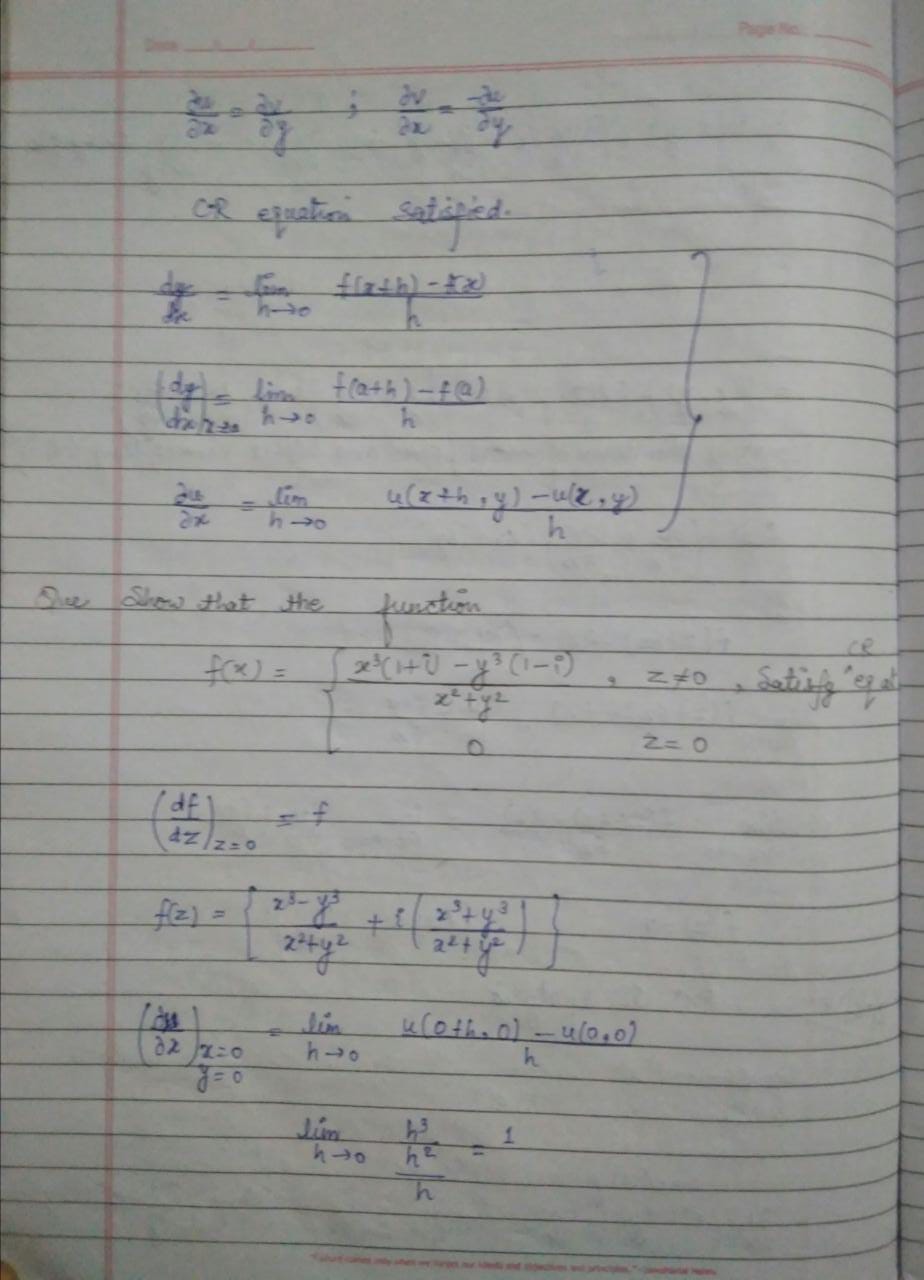 Date ___/___/___
Page No. ______
∂u/∂x = ∂v/∂y ; ∂v/∂x = -∂u/∂y
CR equation satisfied.
dy/dx = lim h→0 f(x+h) - f(x) / h
(dy/dx) = lim h→0 f(a+h) - f(a) / h
∂u/∂x = lim h→0 u(x+h, y) - u(x, y) / h
Que Show that the function
f(x) = { x³(1+i) - y³(1-i) / x²+y² , z≠0 , Satisfy CR eqat
0 z=0
(df/dz) z=0 = f
f(z) = { x³-y³ / x²+y² + i( x³+y³ / x²+y² ) }
(∂u/∂x) x=0 y=0 = lim h→0 u(0+h, 0) - u(0,0) / h
lim h→0 h³/h² / h = 1